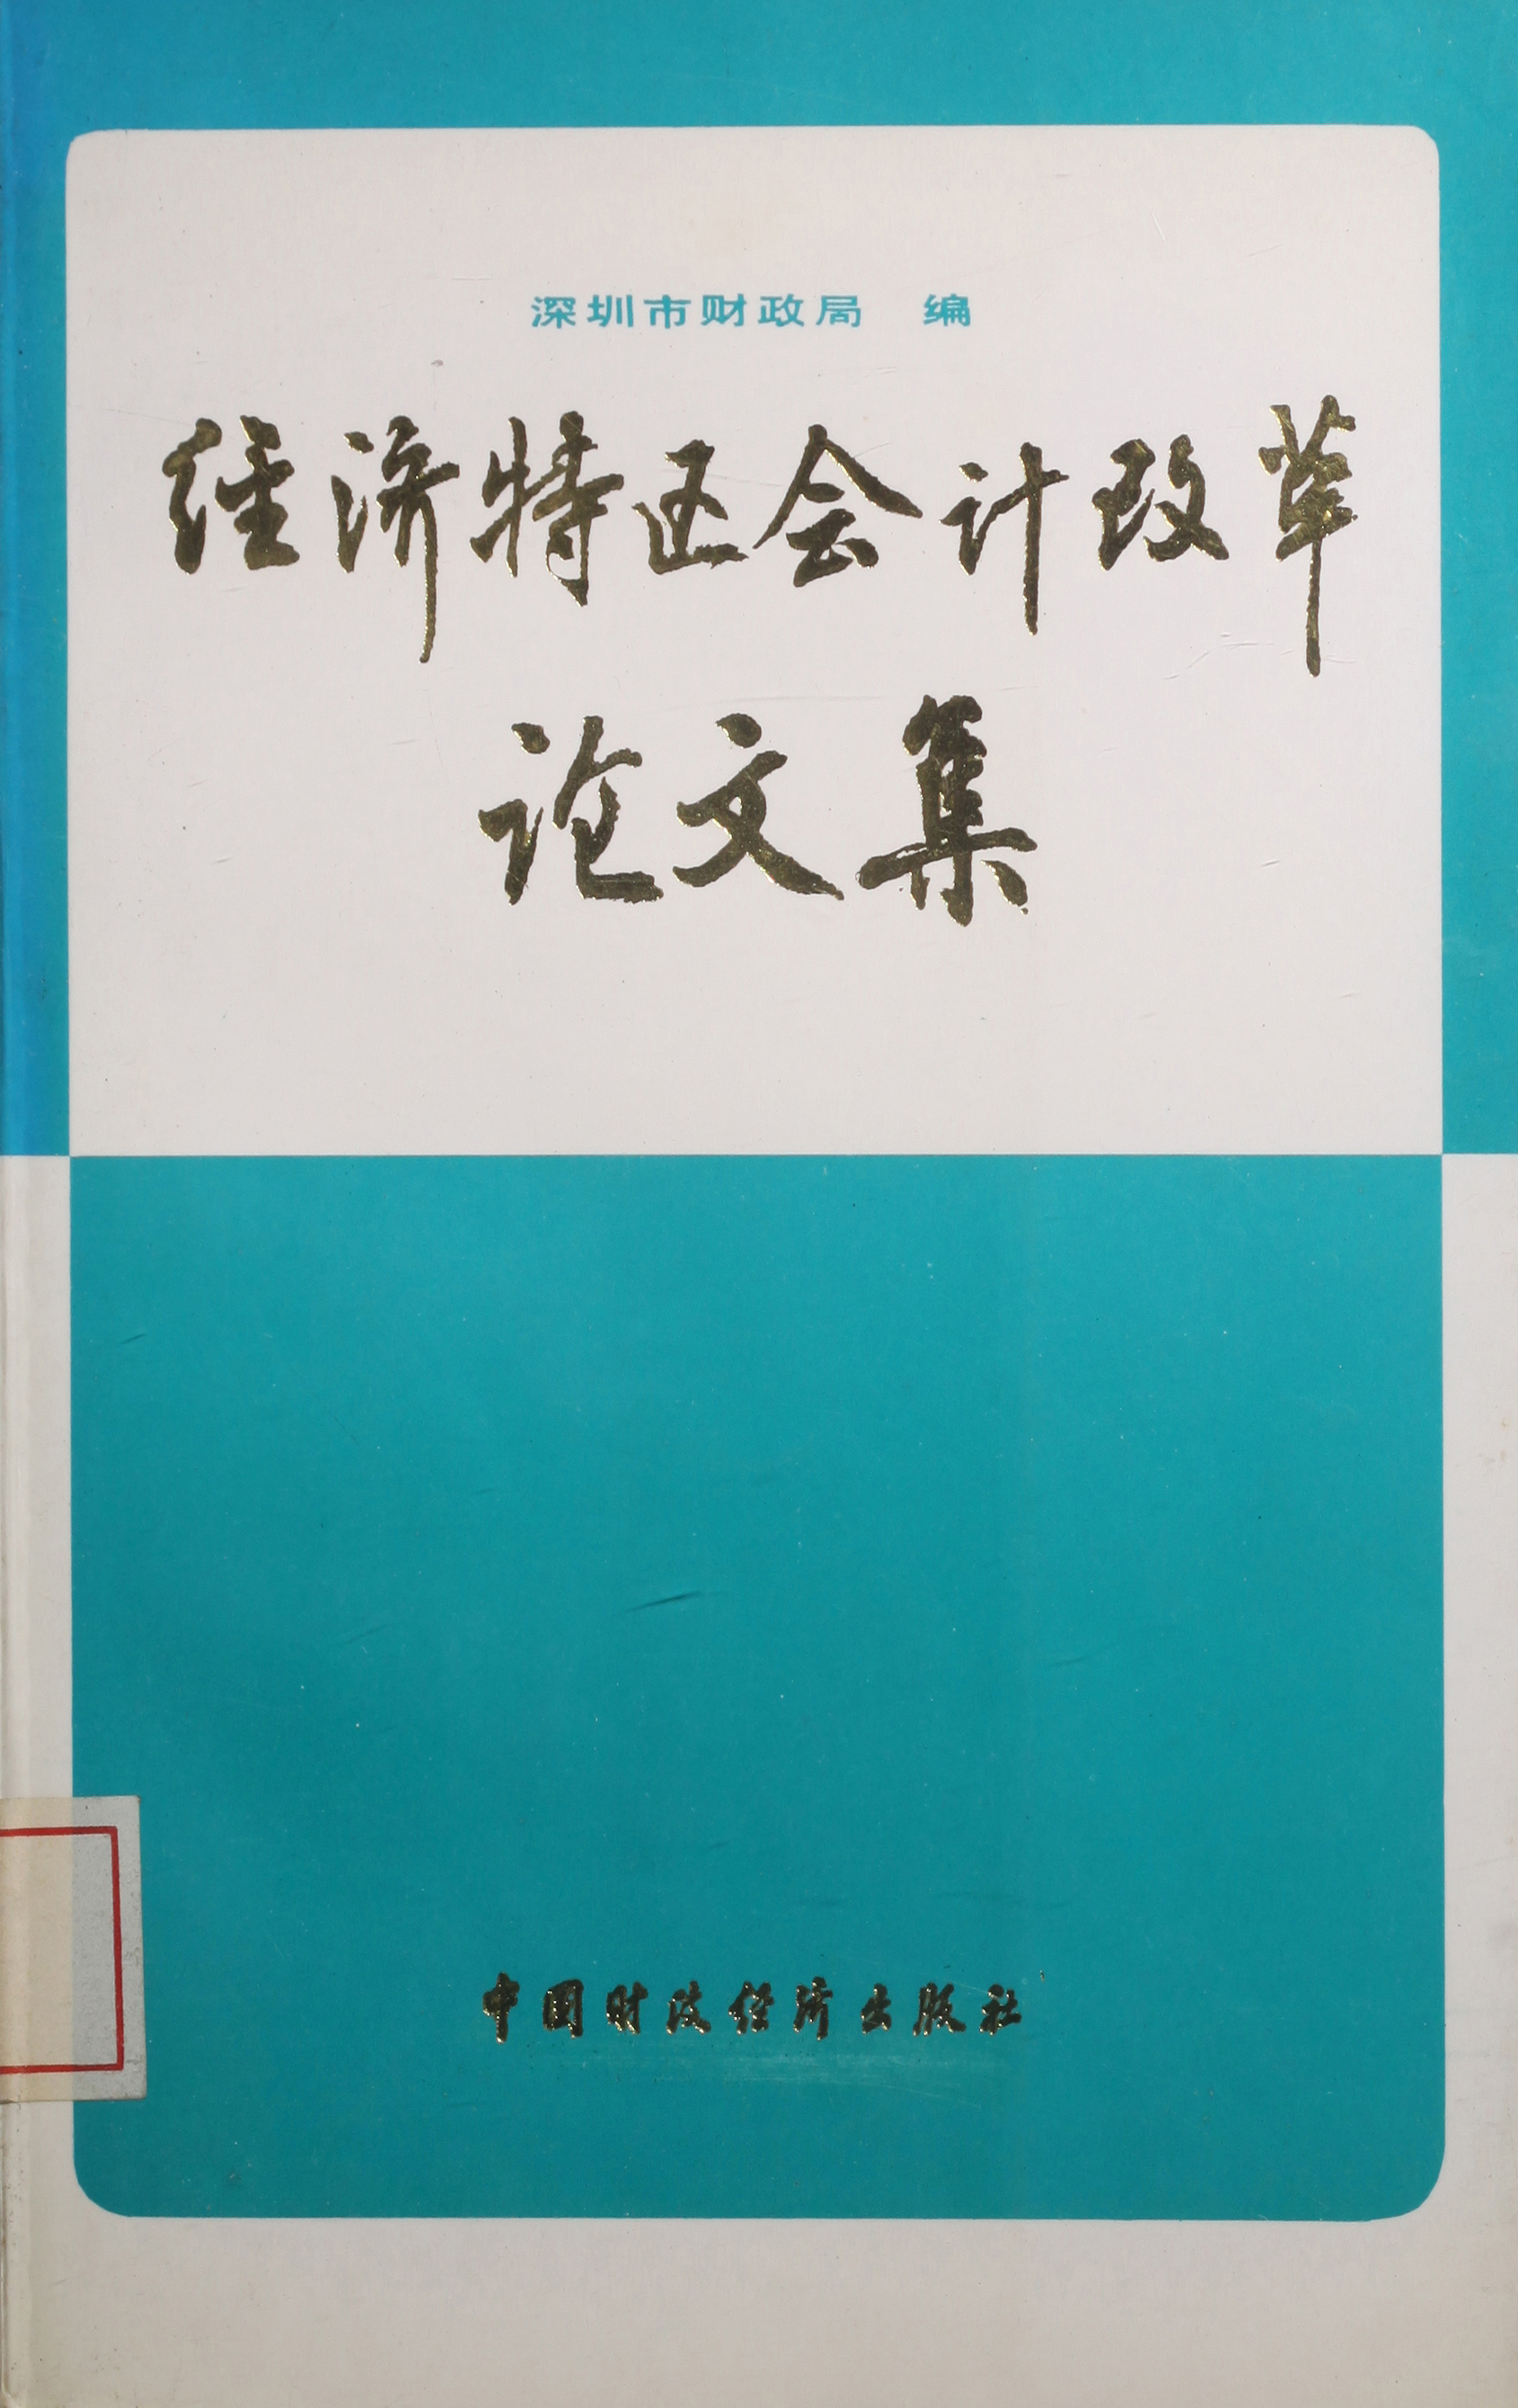 深圳市财政局 编
经济特区会计改革
论文集
中国财政经济出版社